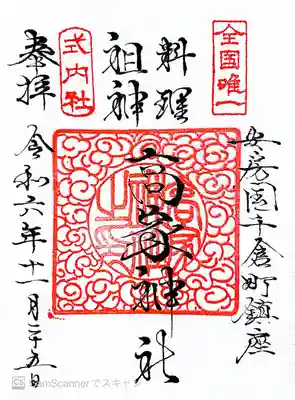 全国唯一
安房国千倉町鎮座
料理
祖神
高家神社
式内社
奉拝
令和六年十一月二十五日
CS CamScannerでスキャン